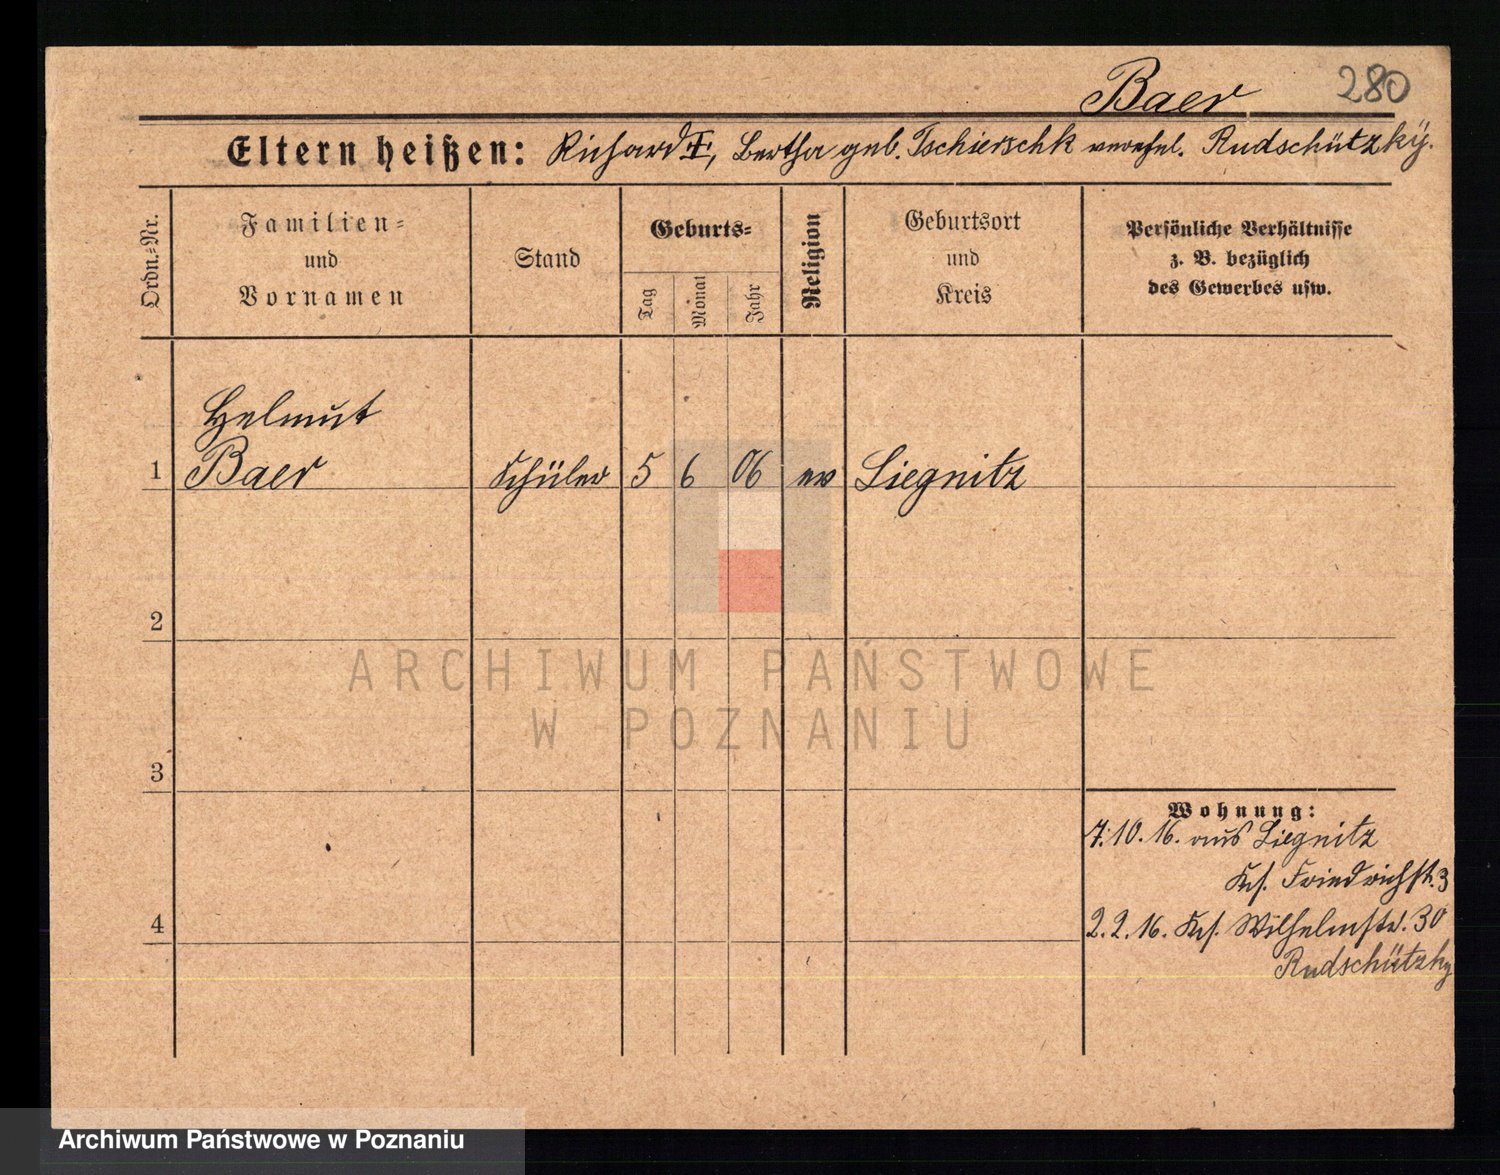 Baer 280
Eltern heißen: Richard ✝, Bertha geb. Tschierschk verehel. Rudschützky.
Ordn.=Nr.
Familien=
und
Vornamen
Stand
Geburts=
Tag
Monat
Jahr
Religion
Geburtsort
und
Kreis
Persönliche Verhältnisse
z. B. bezüglich
des Gewerbes usw.
Helmut
1 Baer Schüler 5 6 06 ev Liegnitz
2
3
4
Wohnung:
7.10.16. aus Liegnitz
Friedrichstr. 3
2.2.16. Wilhelmstr. 30
Rudschützky
ARCHIWUM PAŃSTWOWE
W POZNANIU
Archiwum Państwowe w Poznaniu